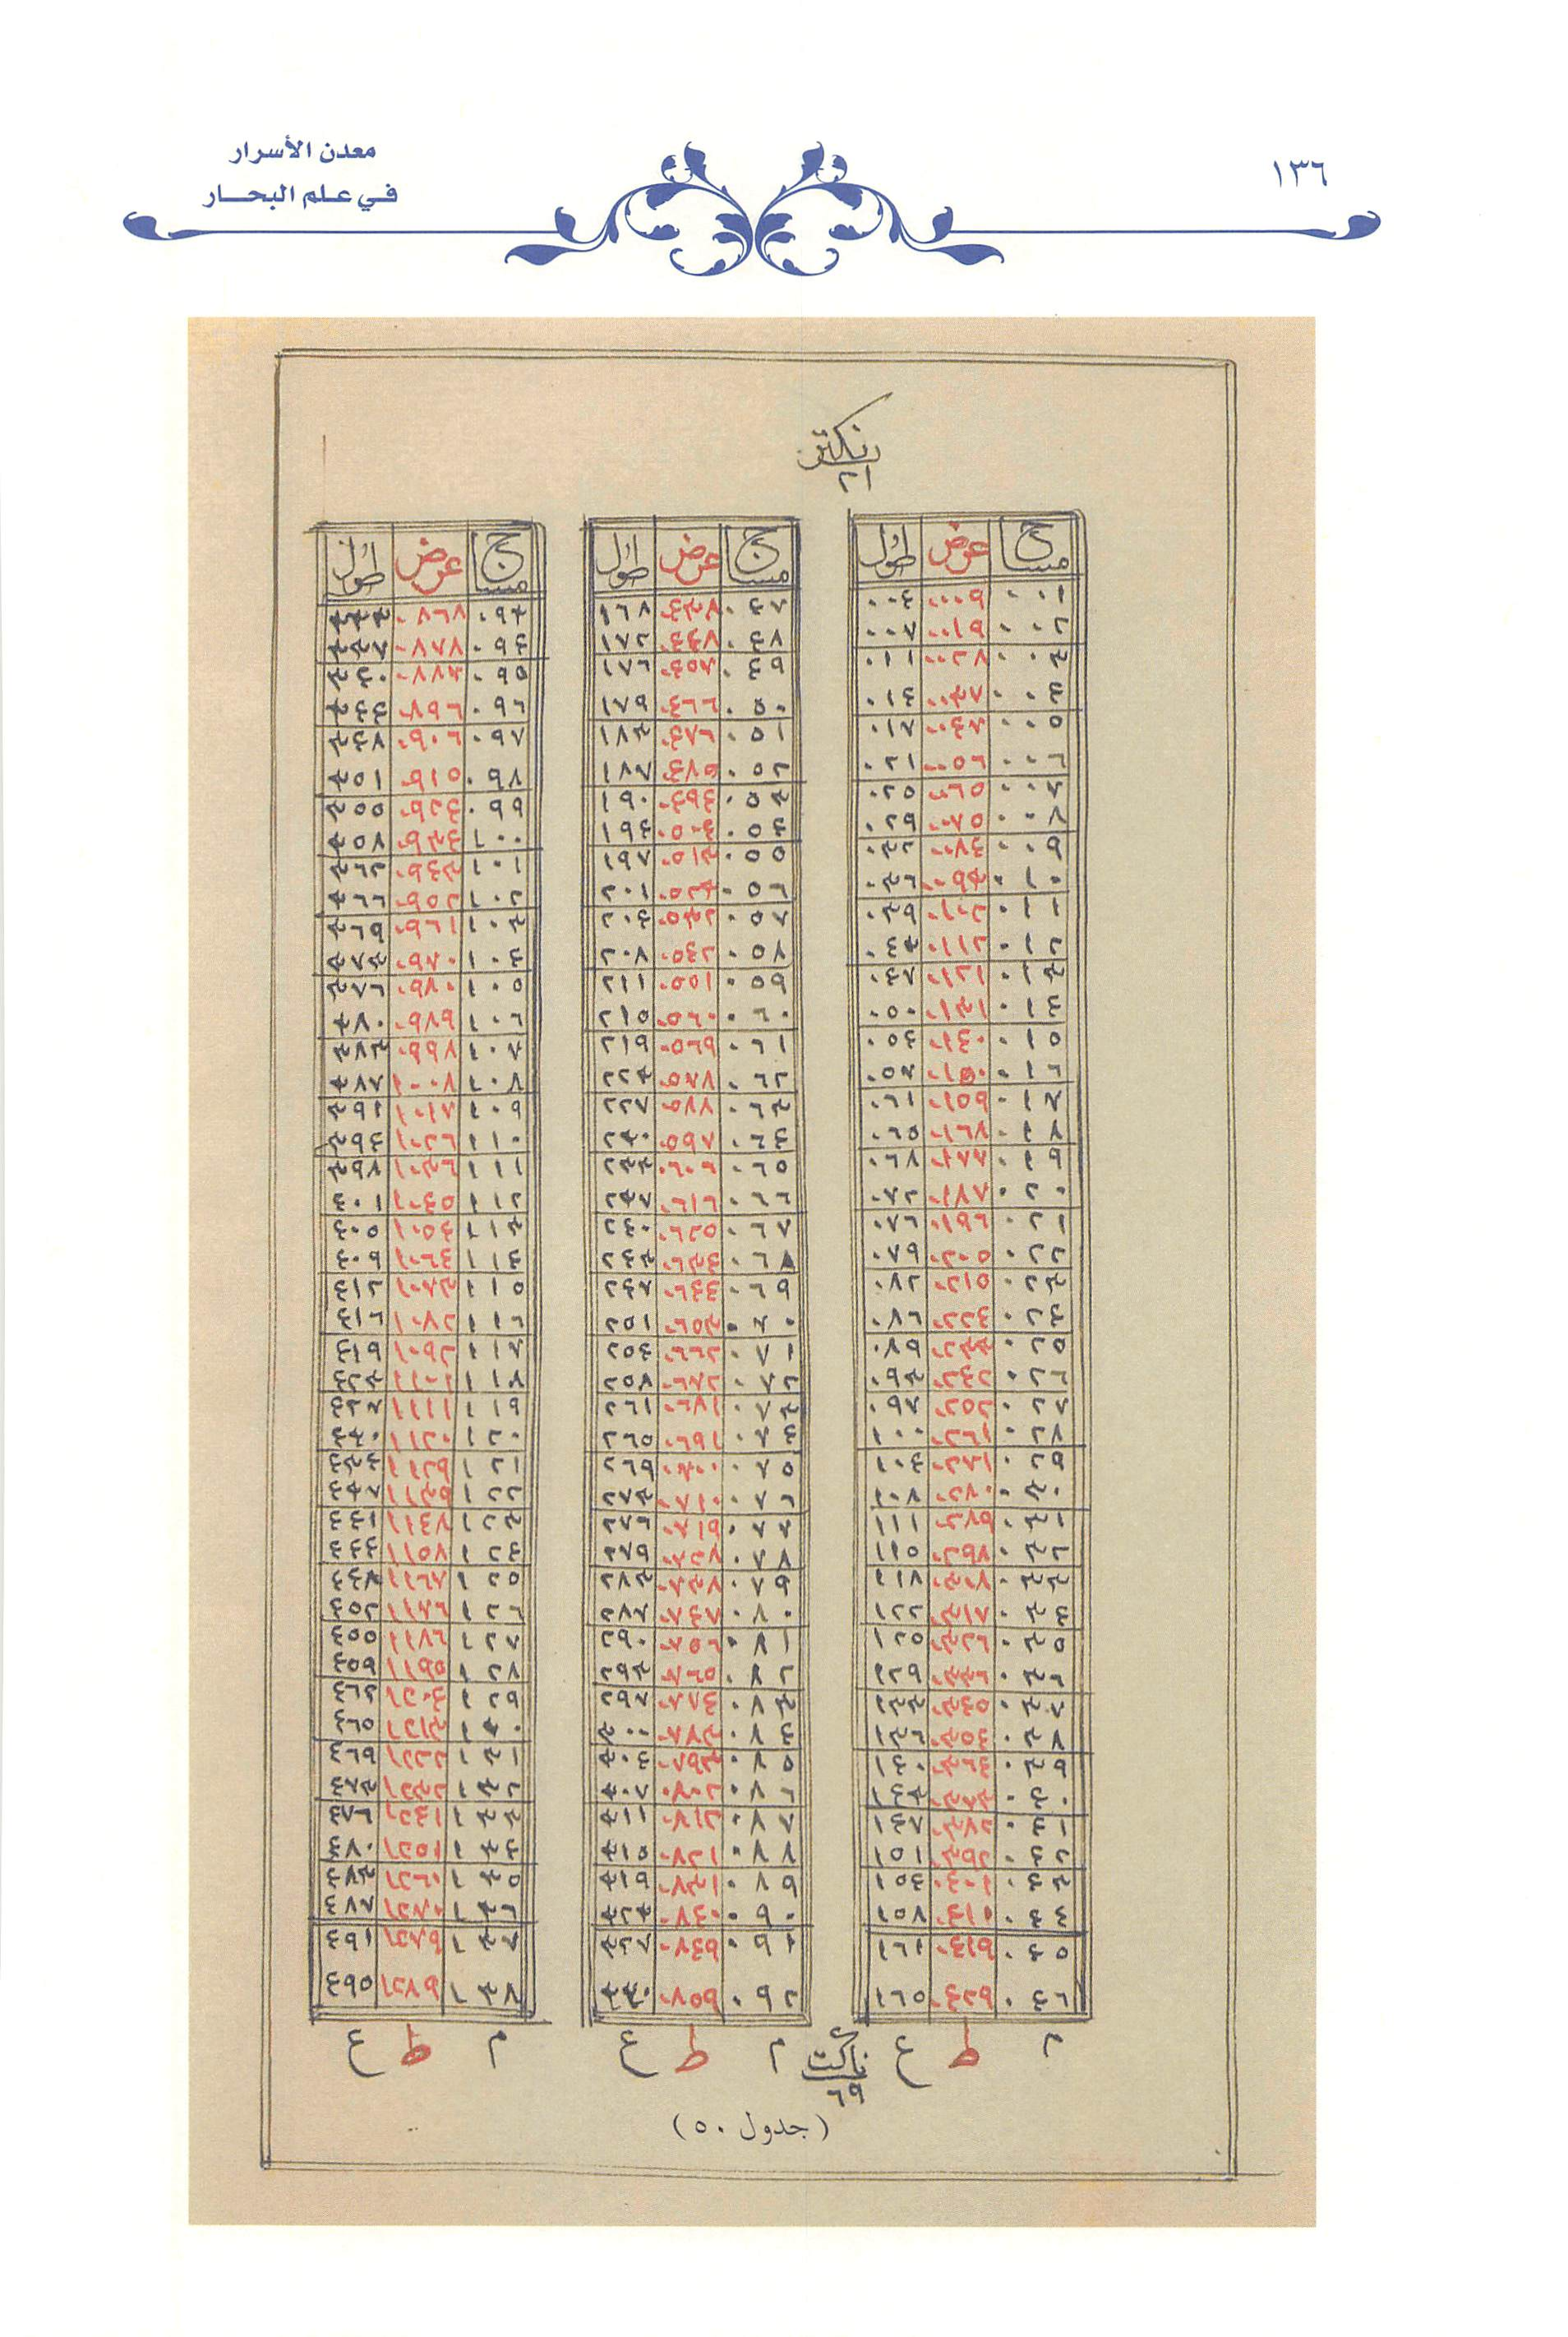 معدن الأسرار
في علم البحار
١٣٦
٢١
مساح عرض طول
٠٠١ ٠٠٠٩ ٠٠٤
٠٠٢ ٠٠١٩ ٠٠٧
٠٠٣ ٠٠٢٨ ٠١١
٠٠٤ ٠٠٣٧ ٠١٤
٠٠٥ ٠٠٤٧ ٠١٨
٠٠٦ ٠٠٥٦ ٠٢١
٠٠٧ ٠٠٦٥ ٠٢٥
٠٠٨ ٠٠٧٥ ٠٢٩
٠٠٩ ٠٠٨٤ ٠٣٢
٠١٠ ٠٠٩٣ ٠٣٦
٠١١ ٠١٠٢ ٠٣٩
٠١٢ ٠١١٢ ٠٤٣
٠١٣ ٠١٢١ ٠٤٧
٠١٤ ٠١٣١ ٠٥٠
٠١٥ ٠١٤٠ ٠٥٤
٠١٦ ٠١٥٠ ٠٥٧
٠١٧ ٠١٥٩ ٠٦١
٠١٨ ٠١٦٨ ٠٦٥
٠١٩ ٠١٧٧ ٠٦٨
٠٢٠ ٠١٨٧ ٠٧٢
٠٢١ ٠١٩٦ ٠٧٦
٠٢٢ ٠٢٠٥ ٠٧٩
٠٢٣ ٠٢١٥ ٠٨٢
٠٢٤ ٠٢٢٤ ٠٨٦
٠٢٥ ٠٢٣٣ ٠٨٩
٠٢٦ ٠٢٤٢ ٠٩٣
٠٢٧ ٠٢٥٢ ٠٩٧
٠٢٨ ٠٢٦١ ١٠٠
٠٢٩ ٠٢٧١ ١٠٤
٠٣٠ ٠٢٨٠ ١٠٨
٠٣١ ٠٢٨٩ ١١١
٠٣٢ ٠٢٩٨ ١١٥
٠٣٣ ٠٣٠٨ ١١٨
٠٣٤ ٠٣١٧ ١٢٢
٠٣٥ ٠٣٢٦ ١٢٥
٠٣٦ ٠٣٣٦ ١٢٩
٠٣٧ ٠٣٤٥ ١٣٣
٠٣٨ ٠٣٥٤ ١٣٦
٠٣٩ ٠٣٦٤ ١٤٠
٠٤٠ ٠٣٧٣ ١٤٣
٠٤١ ٠٣٨٢ ١٤٧
٠٤٢ ٠٣٩٢ ١٥١
٠٤٣ ٠٤٠١ ١٥٤
٠٤٤ ٠٤١١ ١٥٨
٠٤٥ ٠٤١٩ ١٦١
٠٤٦ ٠٤٢٩ ١٦٥
م ط ع
مساح عرض طول
٠٤٧ ٠٤٣٨ ١٦٨
٠٤٨ ٠٤٤٨ ١٧٢
٠٤٩ ٠٤٥٧ ١٧٦
٠٥٠ ٠٤٦٦ ١٧٩
٠٥١ ٠٤٧٦ ١٨٣
٠٥٢ ٠٤٨٥ ١٨٧
٠٥٣ ٠٤٩٤ ١٩٠
٠٥٤ ٠٥٠٤ ١٩٤
٠٥٥ ٠٥١٣ ١٩٧
٠٥٦ ٠٥٢٣ ٢٠١
٠٥٧ ٠٥٣٢ ٢٠٤
٠٥٨ ٠٥٤٢ ٢٠٨
٠٥٩ ٠٥٥١ ٢١١
٠٦٠ ٠٥٦٠ ٢١٥
٠٦١ ٠٥٦٩ ٢١٩
٠٦٢ ٠٥٧٨ ٢٢٣
٠٦٣ ٠٥٨٨ ٢٢٧
٠٦٤ ٠٥٩٧ ٢٣٠
٠٦٥ ٠٦٠٦ ٢٣٣
٠٦٦ ٠٦١٦ ٢٣٧
٠٦٧ ٠٦٢٥ ٢٤٠
٠٦٨ ٠٦٣٤ ٢٤٣
٠٦٩ ٠٦٤٤ ٢٤٧
٠٧٠ ٠٦٥٣ ٢٥١
٠٧١ ٠٦٦٢ ٢٥٤
٠٧٢ ٠٦٧٢ ٢٥٨
٠٧٣ ٠٦٨١ ٢٦١
٠٧٤ ٠٦٩١ ٢٦٥
٠٧٥ ٠٧٠٠ ٢٦٩
٠٧٦ ٠٧١٠ ٢٧٣
٠٧٧ ٠٧١٩ ٢٧٦
٠٧٨ ٠٧٢٨ ٢٧٩
٠٧٩ ٠٧٣٧ ٢٨٣
٠٨٠ ٠٧٤٧ ٢٨٧
٠٨١ ٠٧٥٦ ٢٩٠
٠٨٢ ٠٧٦٥ ٢٩٣
٠٨٣ ٠٧٧٤ ٢٩٧
٠٨٤ ٠٧٨٣ ٣٠٠
٠٨٥ ٠٧٩٣ ٣٠٤
٠٨٦ ٠٨٠٢ ٣٠٧
٠٨٧ ٠٨١٢ ٣١١
٠٨٨ ٠٨٢١ ٣١٥
٠٨٩ ٠٨٣١ ٣١٩
٠٩٠ ٠٨٤٠ ٣٢٣
٠٩١ ٠٨٤٩ ٣٢٧
٠٩٢ ٠٨٥٩ ٣٣٠
م ط ع
مساح عرض طول
٠٩٣ ٠٨٦٨ ٣٣٣
٠٩٤ ٠٨٧٨ ٣٣٧
٠٩٥ ٠٨٨٧ ٣٤٠
٠٩٦ ٠٨٩٦ ٣٤٤
٠٩٧ ٠٩٠٦ ٣٤٧
٠٩٨ ٠٩١٥ ٣٥١
٠٩٩ ٠٩٢٤ ٣٥٥
١٠٠ ٠٩٣٤ ٣٥٨
١٠١ ٠٩٤٣ ٣٦٢
١٠٢ ٠٩٥٢ ٣٦٦
١٠٣ ٠٩٦١ ٣٦٩
١٠٤ ٠٩٧٠ ٣٧٣
١٠٥ ٠٩٨٠ ٣٧٦
١٠٦ ٠٩٨٩ ٣٨٠
١٠٧ ٠٩٩٨ ٣٨٣
١٠٨ ١٠٠٨ ٣٨٧
١٠٩ ١٠١٧ ٣٩١
١١٠ ١٠٢٦ ٣٩٤
١١١ ١٠٣٦ ٣٩٨
١١٢ ١٠٤٥ ٤٠١
١١٣ ١٠٥٤ ٤٠٥
١١٤ ١٠٦٤ ٤٠٩
١١٥ ١٠٧٣ ٤١٢
١١٦ ١٠٨٢ ٤١٦
١١٧ ١٠٩٢ ٤١٩
١١٨ ١١٠١ ٤٢٣
١١٩ ١١١١ ٤٢٧
١٢٠ ١١٢٠ ٤٣٠
١٢١ ١١٢٩ ٤٣٤
١٢٢ ١١٣٩ ٤٣٧
١٢٣ ١١٤٨ ٤٤١
١٢٤ ١١٥٨ ٤٤٤
١٢٥ ١١٦٧ ٤٤٨
١٢٦ ١١٧٦ ٤٥٢
١٢٧ ١١٨٦ ٤٥٥
١٢٨ ١١٩٥ ٤٥٩
١٢٩ ١٢٠٤ ٤٦٢
١٣٠ ١٢١٣ ٤٦٥
١٣١ ١٢٢٢ ٤٦٩
١٣٢ ١٢٣٢ ٤٧٣
١٣٣ ١٢٤١ ٤٧٦
١٣٤ ١٢٥١ ٤٨٠
١٣٥ ١٢٦٠ ٤٨٣
١٣٦ ١٢٧٠ ٤٨٧
١٣٧ ١٢٧٩ ٤٩١
١٣٨ ١٢٨٩ ٤٩٥
م ط ع
٦٩
(جدول ٥٠)